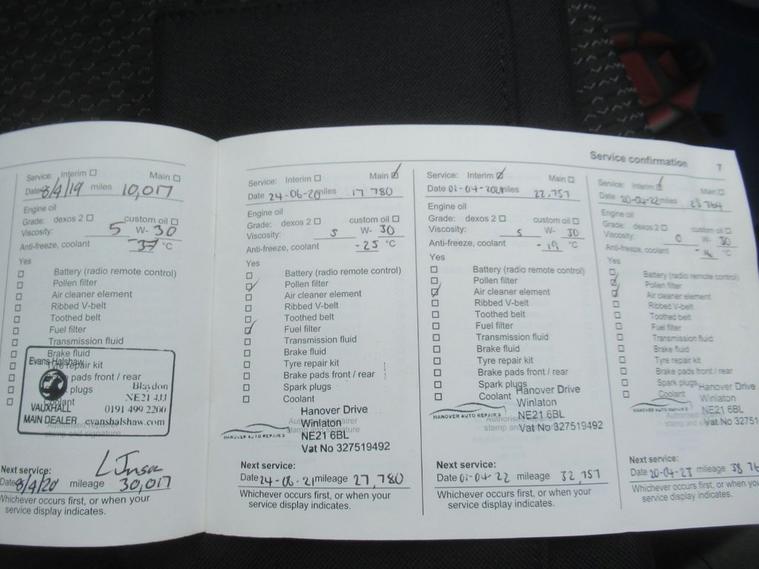 Service confirmation 7
Service: Interim Main
Date 8/4/19 miles 10,017
Engine oil
Grade: dexos 2 custom oil
Viscosity: 5 W- 30
Anti-freeze, coolant -37 °C
Yes
Battery (radio remote control)
Pollen filter
Air cleaner element
Ribbed V-belt
Toothed belt
Fuel filter
Transmission fluid
Brake fluid
Tyre repair kit
pads front / rear
plugs
Evans Halshaw
VAUXHALL
MAIN DEALER
Blaydon
NE21 4JJ
0191 499 2200
evanshalshaw.com
Next service:
Date 8/4/20 mileage 30,017
Whichever occurs first, or when your
service display indicates.
Service: Interim Main
Date 24-06-20 miles 17 780
Engine oil
Grade: dexos 2 custom oil
Viscosity: 5 W- 30
Anti-freeze, coolant -25 °C
Yes
Battery (radio remote control)
Pollen filter
Air cleaner element
Ribbed V-belt
Toothed belt
Fuel filter
Transmission fluid
Brake fluid
Tyre repair kit
Brake pads front / rear
Spark plugs
Coolant
HANOVER AUTO REPAIRS
Hanover Drive
Winlaton
NE21 6BL
Vat No 327519492
Next service:
Date 24-06-21 mileage 27,780
Whichever occurs first, or when your
service display indicates.
Service: Interim Main
Date 01-04-2021 miles 22,757
Engine oil
Grade: dexos 2 custom oil
Viscosity: 5 W- 30
Anti-freeze, coolant -19 °C
Yes
Battery (radio remote control)
Pollen filter
Air cleaner element
Ribbed V-belt
Toothed belt
Fuel filter
Transmission fluid
Brake fluid
Tyre repair kit
Brake pads front / rear
Spark plugs
Coolant
HANOVER AUTO REPAIRS
Hanover Drive
Winlaton
NE21 6BL
Vat No 327519492
Next service:
Date 01-04-22 mileage 32,757
Whichever occurs first, or when your
service display indicates.
Service: Interim Main
Date 20-04-22 miles
Engine oil
Grade: dexos 2 custom oil
Viscosity: 0 W- 30
Anti-freeze, coolant °C
Yes
Battery (radio remote control)
Pollen filter
Air cleaner element
Ribbed V-belt
Toothed belt
Fuel filter
Transmission fluid
Brake fluid
Tyre repair kit
Brake pads front / rear
Spark plugs
Coolant
HANOVER AUTO REPAIRS
Hanover Drive
Winlaton
NE21 6BL
Vat No 3275194
Next service:
Date 20-04-23 mileage
Whichever occurs first, or when your
service display indicates.